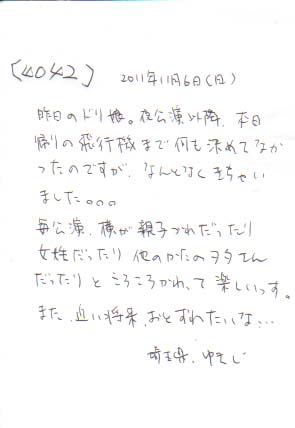 [4042] 2011年11月6日(日)
昨日のドリ娘。夜公演以降、本日
帰りの飛行機まで何も決めてなか
ったのですが、なんとなくきちゃい
ました。。。
毎公演、横が親子づれだったり
女性だったり 他のかたのヲタさん
だったりと ころころかわって 楽しいっす。
また、近い将来、おとずれたいな…
埼玉県、ゆきじ